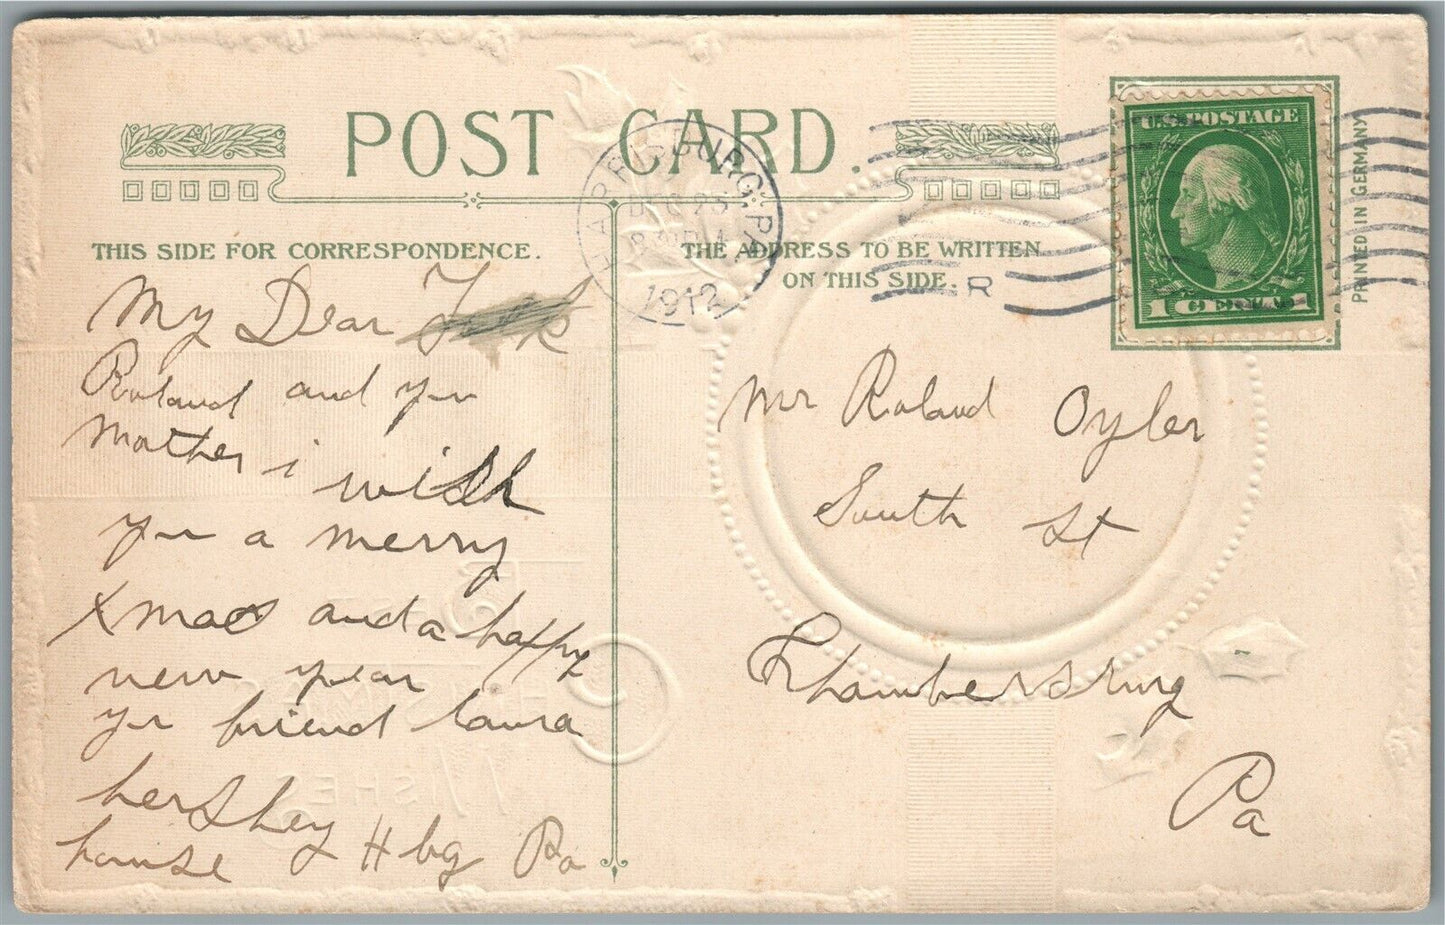 POST CARD.
THIS SIDE FOR CORRESPONDENCE.
My Dear
Roland and yu
Mother i wish
yu a merry
Xmas and a happy
new year
yr friend Laura
hershey
house Hbg Pa
HARRISBURG, PA.
DEC 23
1912
THE ADDRESS TO BE WRITTEN
ON THIS SIDE.
R
U.S. POSTAGE
1 CENT 1
PRINTED IN GERMANY
Mr Roland Oyler
South St
Chambersburg
Pa